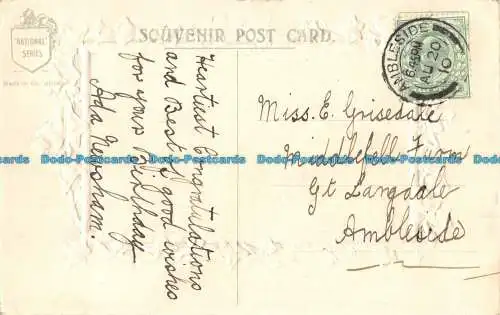 SOUVENIR POST CARD.
"NATIONAL"
SERIES
Heartiest Congratulations
and Best of good wishes
for your Birthday
Ada Newsham.
AMBLESIDE
AU 20
10
Miss. E. Grisedale
Middlefell Farm
Gt Langdale
Ambleside
Dodo-Postcards Dodo-Postcards Dodo-Postcards Dodo-Postcards Dodo-Postcards